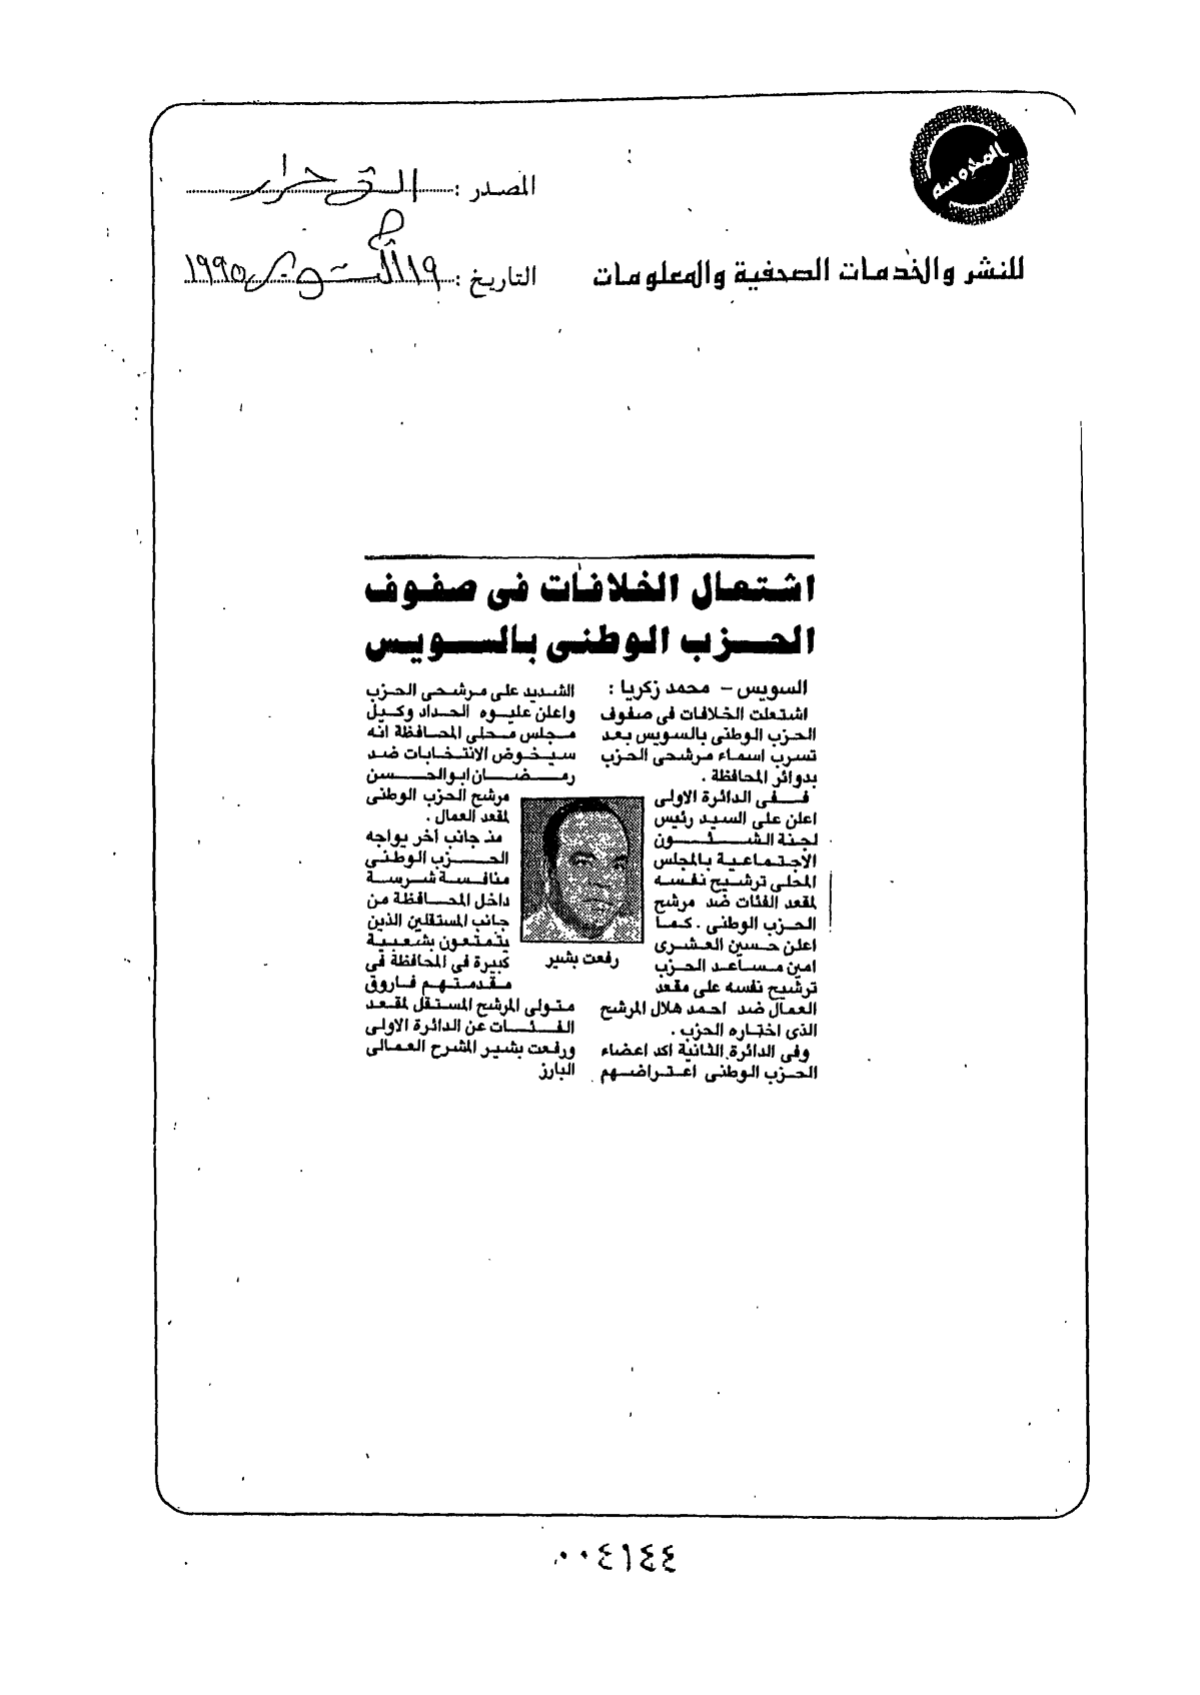 المحروسة
المصدر :
للنشر والخدمات الصحفية والمعلومات
التاريخ : ١٩ أكتوبر ١٩٩٥
اشتعال الخلافات فى صفوف
الحزب الوطنى بالسويس
السويس - محمد زكريا :
اشتعلت الخلافات فى صفوف
الحزب الوطنى بالسويس بعد
تسرب اسماء مرشحى الحزب
بدوائر المحافظة .
ففى الدائرة الاولى
اعلن على السيد رئيس
لجنة الشئون
الاجتماعية بالمجلس
المحلى ترشيح نفسه
لمقعد الفئات ضد مرشح
الحزب الوطنى . كما
اعلن حسين العشرى
امين مساعد الحزب
ترشيح نفسه على مقعد
العمال ضد احمد هلال المرشح
الذى اختاره الحزب .
وفى الدائرة الثانية اكد اعضاء
الحزب الوطنى اعتراضهم
الشديد على مرشحى الحزب
واعلن عليوه الحداد وكيل
مجلس محلى المحافظة انه
سيخوض الانتخابات ضد
رمضان ابوالحسن
مرشح الحزب الوطنى
لمقعد العمال .
منذ جانب آخر يواجه
الحزب الوطنى
منافسة شرسة
داخل المحافظة من
جانب المستقلين الذين
يتمتعون بشعبية
كبيرة فى المحافظة فى
مقدمتهم فاروق
متولى المرشح المستقل لمقعد
الفئات عن الدائرة الاولى
ورفعت بشير المشرح العمالى
البارز
رفعت بشير
٠٠٤١٤٤